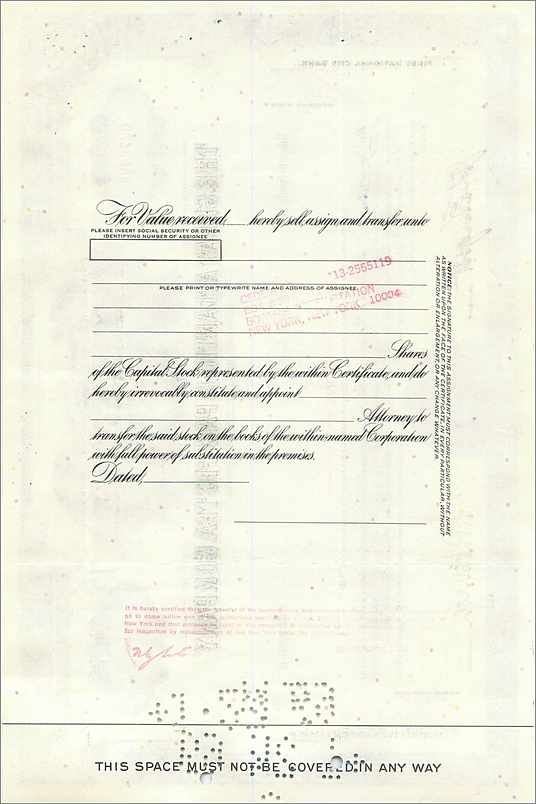 For Value received, hereby sell, assign, and transfer unto
PLEASE INSERT SOCIAL SECURITY OR OTHER
IDENTIFYING NUMBER OF ASSIGNEE
13-2555119
PLEASE PRINT OR TYPEWRITE NAME AND ADDRESS OF ASSIGNEE
NEW YORK, NEW YORK 10004
Shares
of the Capital Stock represented by the within Certificate, and do
hereby irrevocably constitute and appoint
Attorney to
transfer the said stock on the books of the within-named Corporation
with full power of substitution in the premises.
Dated,
NOTICE: THE SIGNATURE TO THIS ASSIGNMENT MUST CORRESPOND WITH THE NAME
AS WRITTEN UPON THE FACE OF THE CERTIFICATE, IN EVERY PARTICULAR, WITHOUT
ALTERATION OR ENLARGEMENT, OR ANY CHANGE WHATEVER.
It is hereby certified
New York and that
for inspection by
THIS SPACE MUST NOT BE COVERED IN ANY WAY